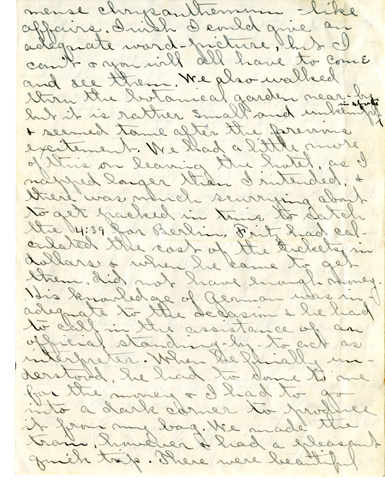 mense chrysanthemum-like
affairs. I wish I could give an
adequate word-picture, but I
can't & you will all have to come
and see them. We also walked
thru the botanical garden near-by
but it is rather small and
in spots
& seemed tame after the previous
excitement. We had a little more
of this on leaving the hotel, as I
napped longer than I intended, &
there was much scurrying about
to get packed in time to catch
the 4:39 for Berlin. Frit had cal-
culated the cost of the tickets in
dollars & when he came to get
them, did not have enough money.
His knowledge of German was in-
adequate to the occasion & he had
to call in the assistance of an
official standing-by to act as
interpreter. When he finally un-
derstood, he had to come to me
for the money & I had to go
into a dark corner to produce
it from my bag. We made the
train, however & had a pleasant
quick trip. There were beautiful